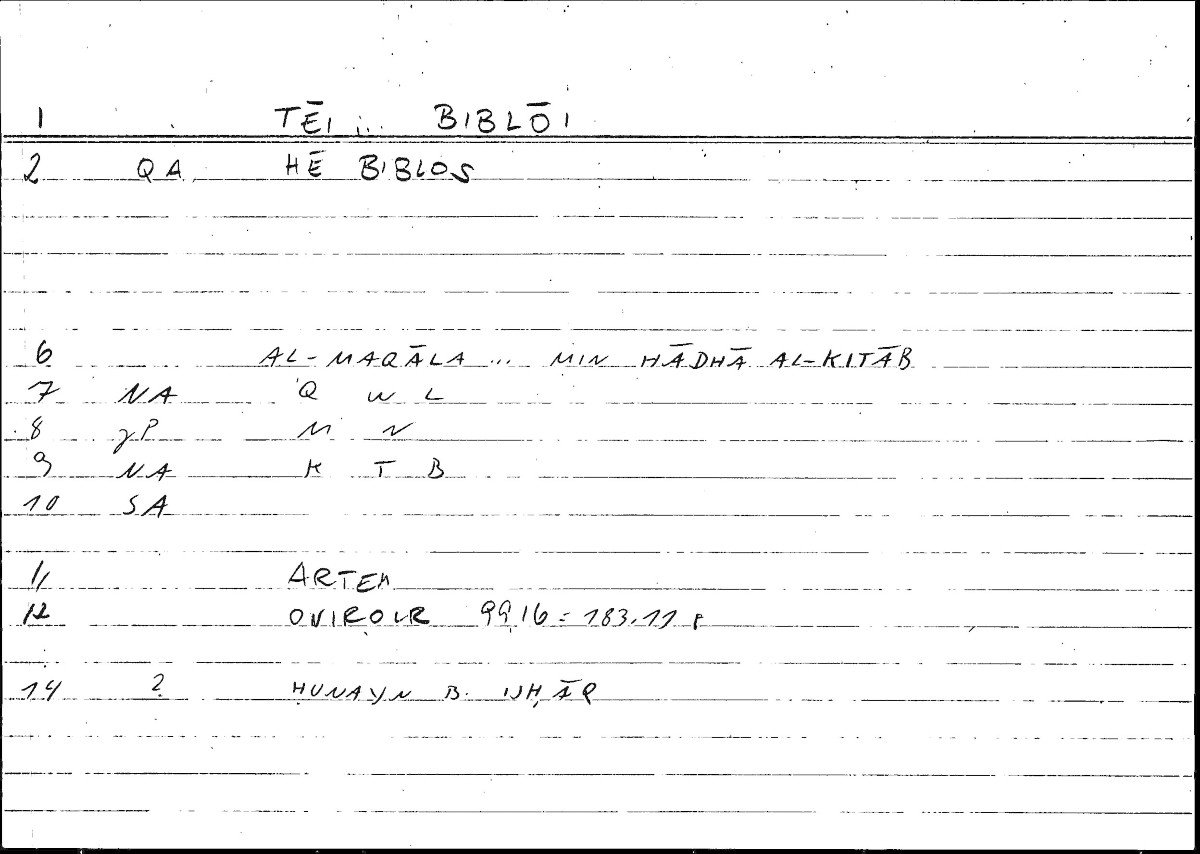 1 TĒI ... BIBLŌI
2 QA HĒ BIBLOS
6 AL-MAQĀLA ... MIN HĀDHĀ AL-KITĀB
7 NA Q W L
8 γP M N
9 NA K T B
10 SA
11 ARTEM
12 ONIROCR 99,16 = 183,11
14 2 ḤUNAYN B. ISḤĀQ